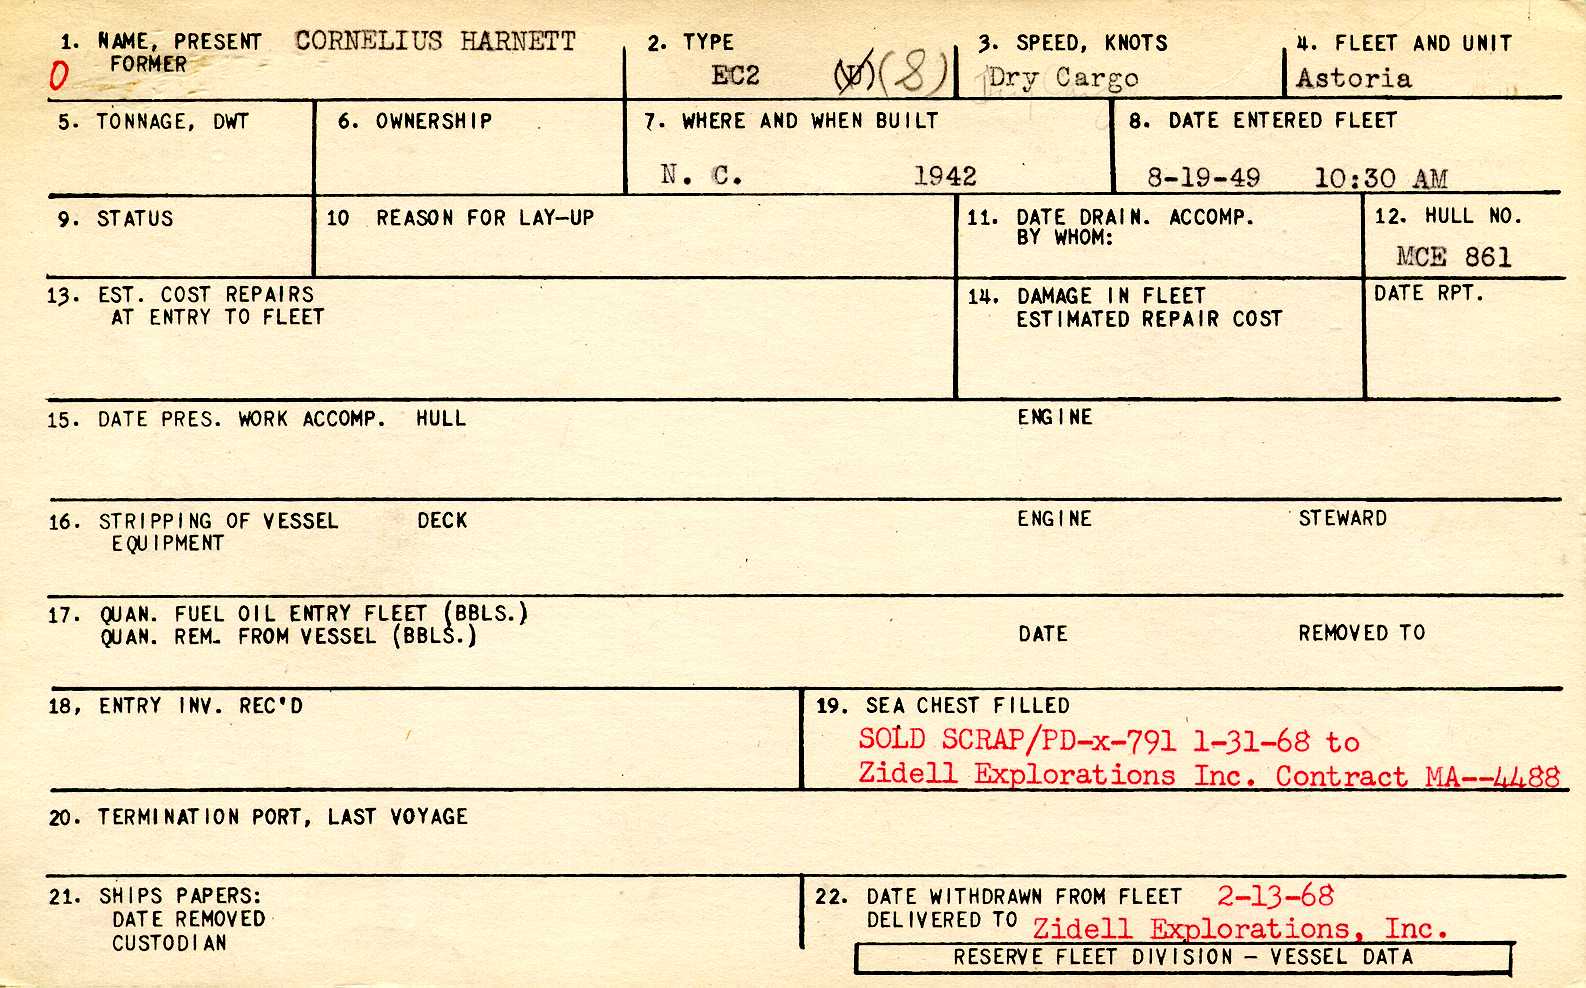 1. NAME, PRESENT CORNELIUS HARNETT
FORMER
O
2. TYPE
EC2 (U) (8)
3. SPEED, KNOTS
Dry Cargo
4. FLEET AND UNIT
Astoria
5. TONNAGE, DWT
6. OWNERSHIP
7. WHERE AND WHEN BUILT
N. C. 1942
8. DATE ENTERED FLEET
8-19-49 10:30 AM
9. STATUS
10 REASON FOR LAY-UP
11. DATE DRAIN. ACCOMP.
BY WHOM:
12. HULL NO.
MCE 861
13. EST. COST REPAIRS
AT ENTRY TO FLEET
14. DAMAGE IN FLEET
ESTIMATED REPAIR COST
DATE RPT.
15. DATE PRES. WORK ACCOMP. HULL ENGINE
16. STRIPPING OF VESSEL DECK ENGINE STEWARD
EQUIPMENT
17. QUAN. FUEL OIL ENTRY FLEET (BBLS.)
QUAN. REM. FROM VESSEL (BBLS.) DATE REMOVED TO
18, ENTRY INV. REC'D
19. SEA CHEST FILLED
SOLD SCRAP/PD-x-791 1-31-68 to
Zidell Explorations Inc. Contract MA--4488
20. TERMINATION PORT, LAST VOYAGE
21. SHIPS PAPERS:
DATE REMOVED
CUSTODIAN
22. DATE WITHDRAWN FROM FLEET 2-13-68
DELIVERED TO Zidell Explorations, Inc.
RESERVE FLEET DIVISION – VESSEL DATA